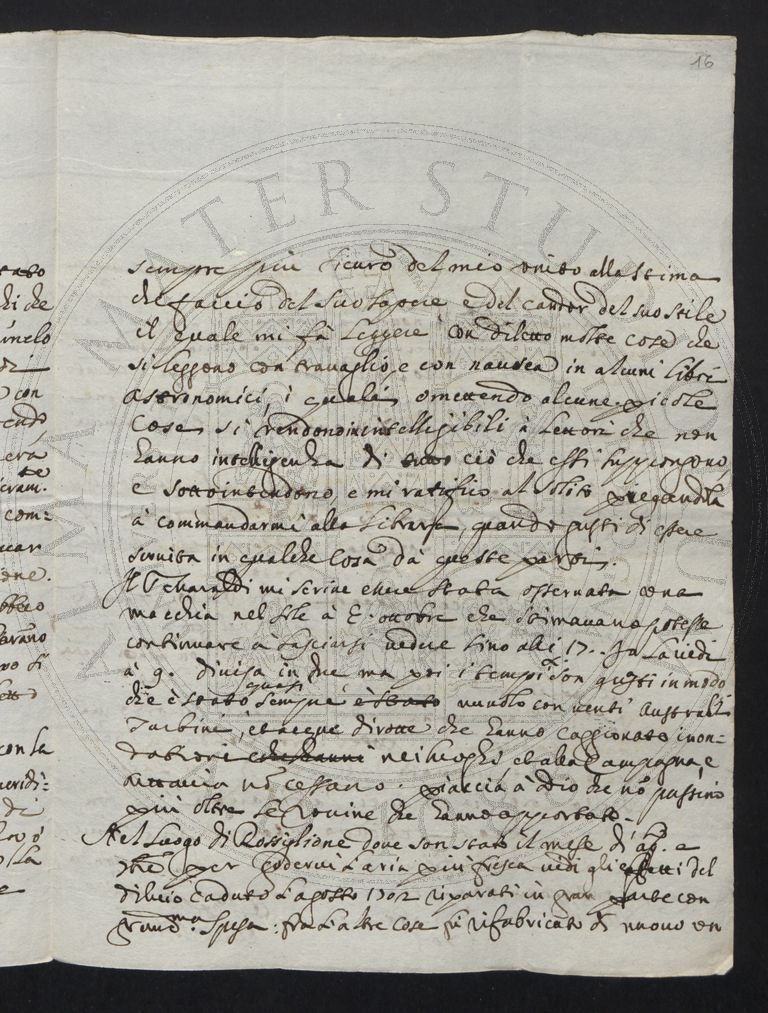 16
sempre più sicuro del mio unito alla stima
che faccio del suo sapere e del candor del suo stile
il quale mi fà leggere con diletto molte cose che
si leggono con travaglio, e con nausea in alcuni libri
astronomici i quali omettendo alcune picole
cose si rendono inintelligibili à lettori che non
hanno intelligenza di tutto ciò che essi suppongono
e sottointendono, e mi ratifico al solito pregandola
à commandarmi alla libera, quando gusti di essere
servita in qualche cosa dà queste parti.
Il mi scrive essere stata osservata una
macchia nel sole à ottobre che stimavano potesse
continuare à lasciarsi vedere sino alli 17. Io la vidi
à 9. divisa in due ma poi i tempi son guasti in modo
che è stato quasi sempre è stato nuvolo con venti Australi
Turbini, et acque dirotte che hanno caggionato inon-
dationi che hanno nei luoghi et alla Campagna, e
tuttavia nō cessano. piaccia à Dio che nō passino
più oltre le rovine che hanno apportato.
Nel luogo di Rossiglione dove son stato il mese di e
per godervi l'aria più fresca vidi gli effetti del
diluvio caduto l'agosto 1702 riparati in gran parte con
grandma spesa: fra l'altre cose si è rifabricato di nuovo un
ALMA MATER STUDIORUM